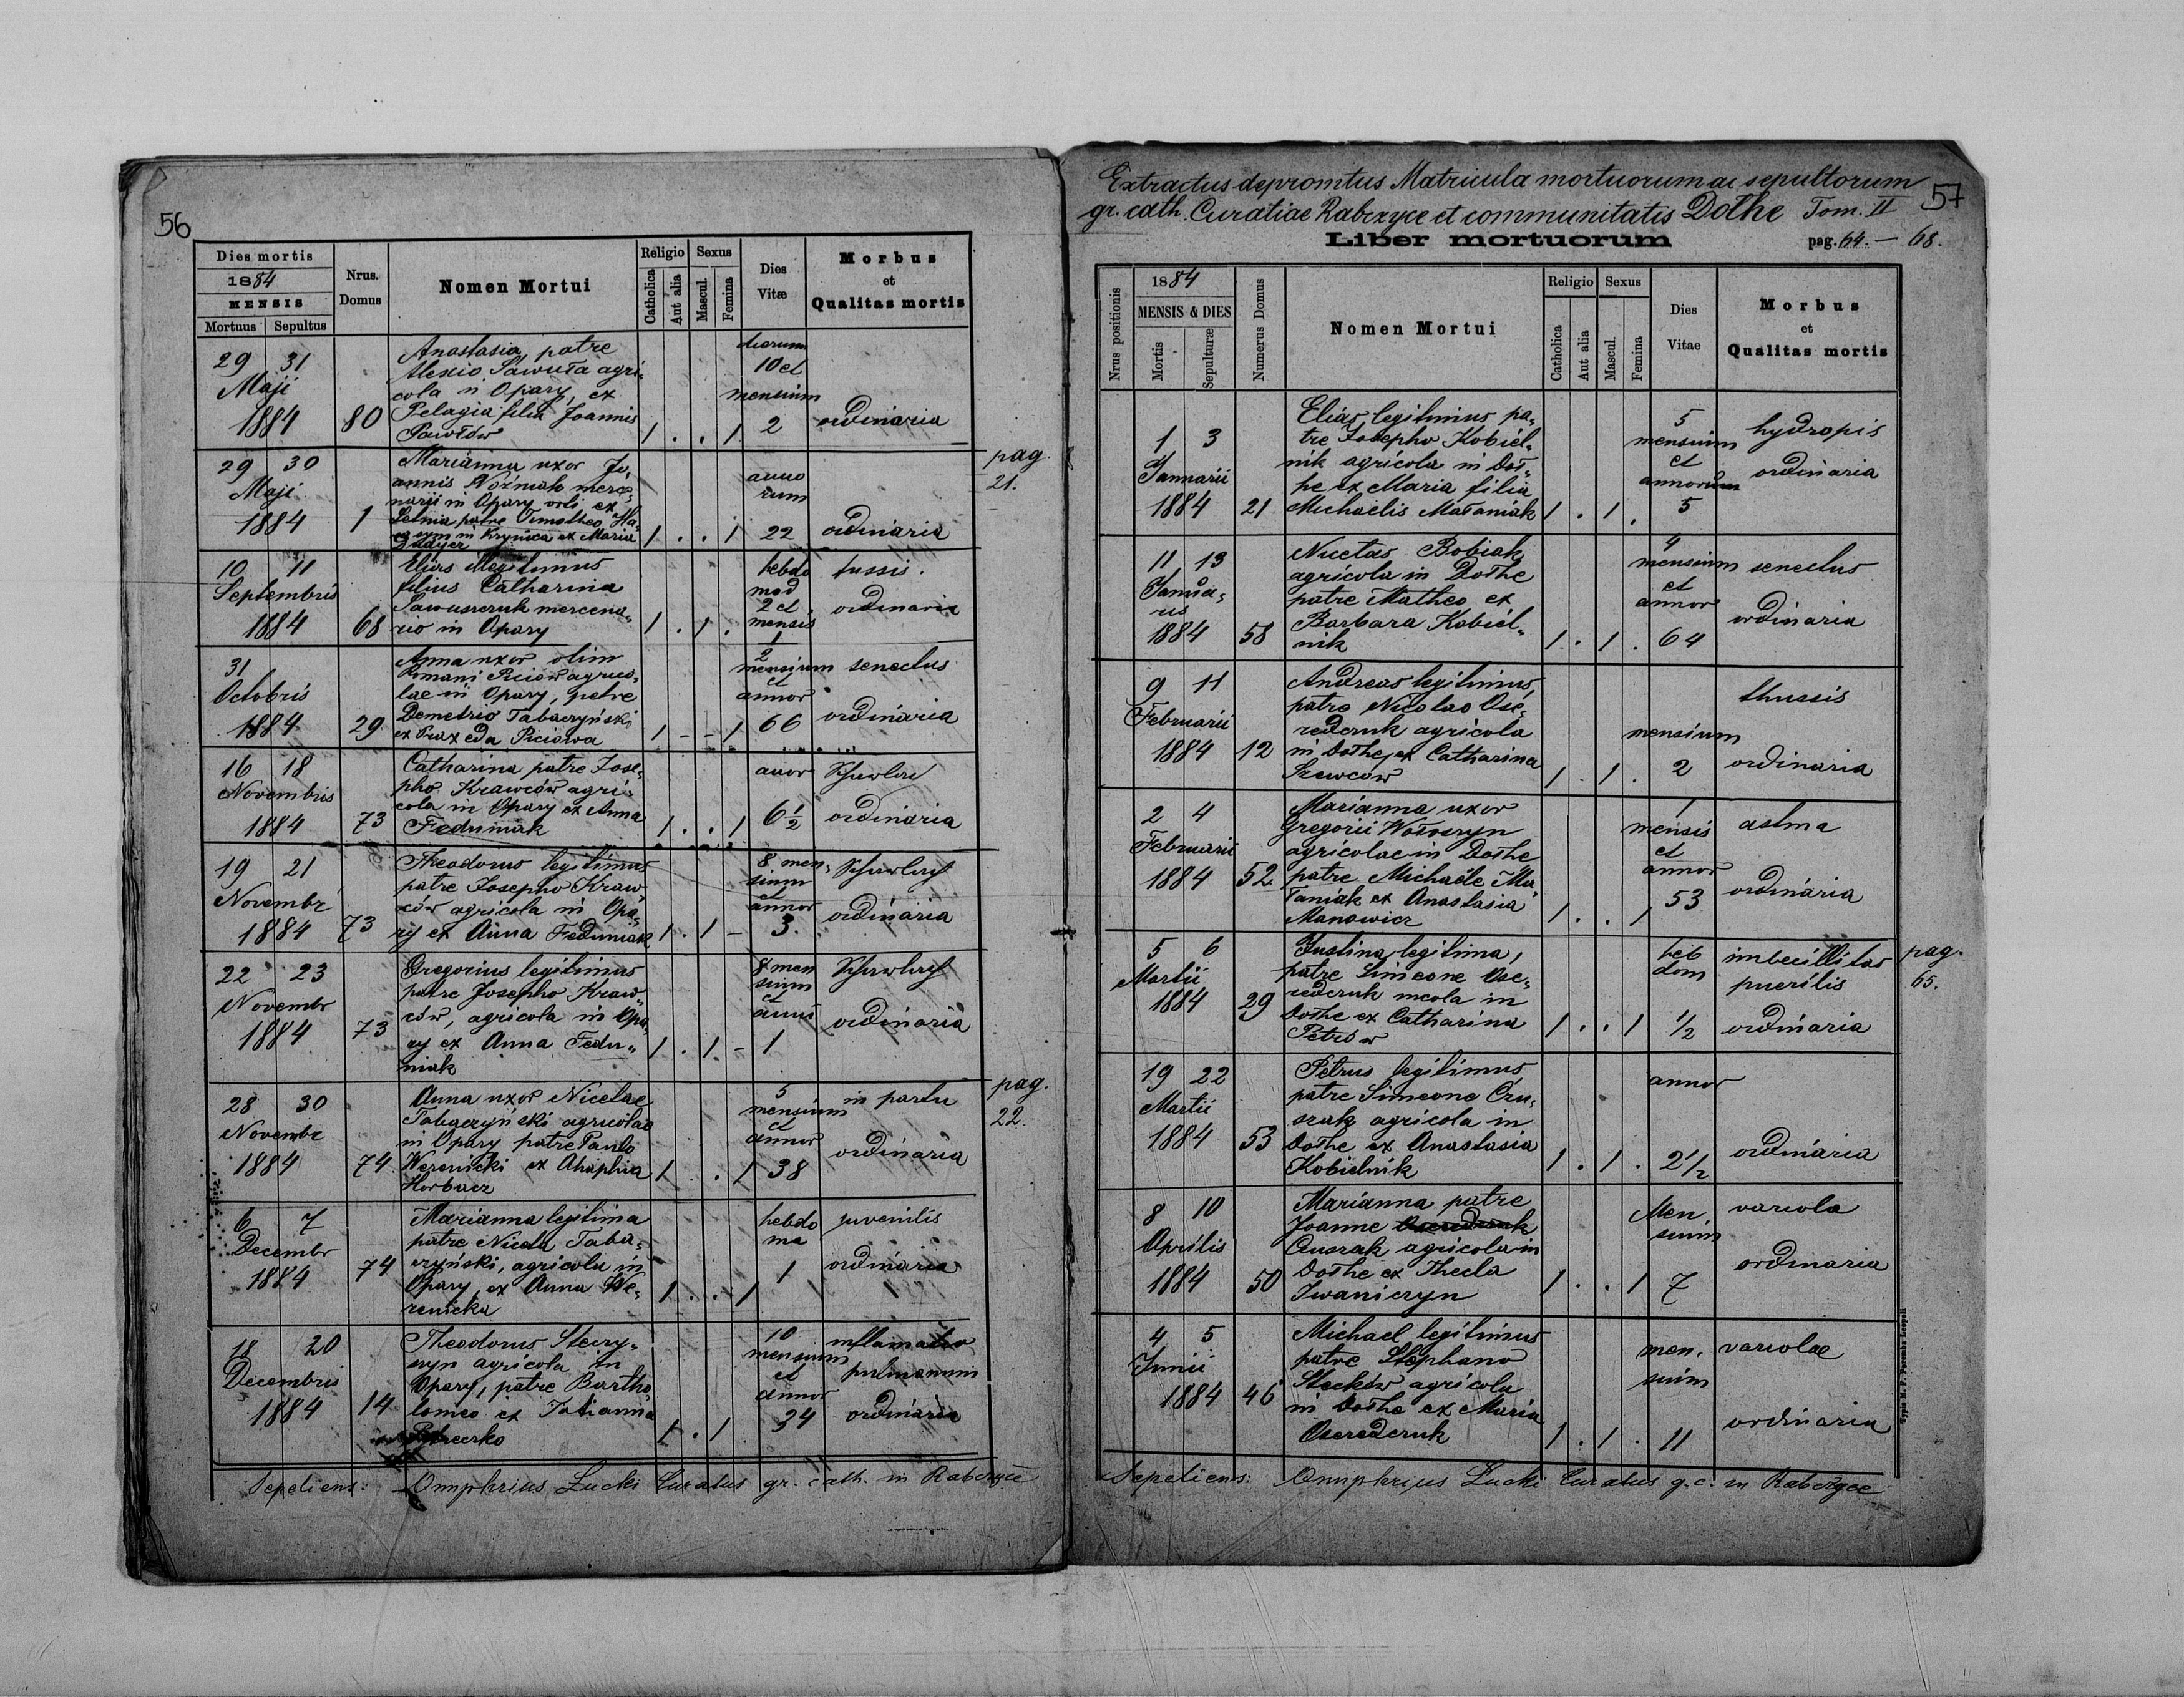 56
Dies mortis
1884
MENSIS
Mortuus Sepultus
Nrus. Domus
Nomen Mortui
Religio
Catholica
Aut alia
Sexus
Mascul.
Femina
Dies Vitæ
Morbus
et
Qualitas mortis
29 31
Maji
1884
80
Anastasia, patre
Alexio Sawuła agri-
cola in Opary, ex
Pelagia filia Joannis
Pawłów
1 . . 1
dierum
10 et
mensium
2
ordinaria
pag.
21.
29 30
Maji
1884
1
Marianna uxor Jo-
annis Woźniak merce-
narii in Opary
patre Timotheo
in Krynica ex Maria
1 . . 1
anno
rum
22
ordinaria
10 11
Septembris
1884
68
Elias illegitimus
filius Catharina
Sawuszczuk mercena-
rio in Opary
1 . 1 .
hebdo
mad
2 et
mensis
1
tussis.
ordinaria
31
Octobris
1884
29
Anna uxor olim
Romani Piciów agrico-
lae in Opary, patre
Demetrio Tabaczyński
ex Praxeda Piciowa
1 - - 1
2
mensium
et
annor
66
senectus
ordinaria
16 18
Novembris
1884
73
Catharina patre Jose-
pho Krawców agri-
cola in Opary ex Anna
Feduniak
1 . . 1
annor
6 1/2
ordinaria
19 21
Novembr
1884
73
Theodorus legitimus
patre Josepho Kraw
ców agricola in Opa-
ry ex Anna Feduniak
1 . 1 -
8 men-
sium
et
annor
3.
ordinaria
22 23
Novembr
1884
73
Gregorius legitimus
patre Josepho Kraw-
ców, agricola in Opa-
ry ex Anna Fedu-
niak
1 . 1 -
8 men
sium
et
anni
1
ordinaria
pag.
22.
28 30
Novembr
1884
74
Anna uxor Nicetae
Tabaczyński agricolae
in Opary patre Paulo
Werenicki ex Ahaphia
Horbacz
1 . . 1
5
mensium
et
annor
38
in partu
ordinaria
6 7
Decembr
1884
74
Marianna legitima
patre Niceta Taba-
czyński, agricola in
Opary, ex Anna We-
renicka
1 . . 1
hebdo
ma
1
juvenilis
ordinaria
18 20
Decembris
1884
14
Theodorus Steczy-
szyn agricola in
Opary, patre Bartho-
lomeo ex Tatianna
1 . 1
10
mensium
et
annor
34
inflamatio
pulmonum
ordinaria
Sepeliens: Onuphrius Łucki Curatus gr. cath. in Rabczyce
Extractus depromtus Matricula mortuorum ac sepultorum
gr. cath. Curatiae Rabczyce et communitatis Dołhe Tom. II
57
Liber mortuorum
pag. 64. — 68.
Nrus positionis
1884
MENSIS & DIES
Mortis
Sepulturæ
Numerus Domus
Nomen Mortui
Religio
Catholica
Aut alia
Sexus
Mascul.
Femina
Dies
Vitae
Morbus
et
Qualitas mortis
1 3
Januarii
1884
21
Elias, legitimus pa-
tre Josepho Kobiel-
nik agricola in Doł-
he ex Maria filia
Michaelis Małaniak
1 . 1 .
5
mensium
et
annorum
5
hydropis
ordinaria
11 13
Janua-
rii
1884
58
Nicetas Bobiak
agricola in Dołhe
patre Matheo ex
Barbara Kobiel-
nik
1 . 1 .
4
mensium
et
annor
64
senectus
ordinaria
9 11
Februarii
1884
12
Andreas legitimus,
patre Nicolao Ose-
redczuk agricola
in Dołhe, ex Catharina
Szewców
1 . 1 .
mensium
2
thussis
ordinaria
2 4
Februarii
1884
52
Marianna uxor
Gregorii Wołoszyn
agricolae in Dołhe
patre Michaële Ma-
łaniak ex Anastasia
Manowicz
1 . . 1
1
mensis
et
annor
53
astma
ordinaria
5 6
Martii
1884
29
Justina, legitima,
patre Simeone Ose-
redczuk incola in
Dołhe ex Catharina
Petrów
1 . . 1
heb
dom
1/2
imbecillitas
puerilis
ordinaria
pag.
65.
19 22
Martii
1884
53
Petrus legitimus
patre Simeone Cru-
szak agricola in
Dołhe ex Anastasia
Kobielnik
1 . 1 .
annor
2 1/2
ordinaria
8 10
Aprilis
1884
50
Marianna patre
Joanne Oseredczuk
Cruszak agricola in
Dołhe ex Thecla
Iwaniczyn
1 . . 1
Men
sium
7
variola
ordinaria
4 5
Junii
1884
46
Michael legitimus
patre Stephano
Steckiw agricola
in Dołhe ex Maria
Oseredczuk
1 . 1 .
men.
sium
11
variolae
ordinaria
Sepeliens: Onuphrius Łucki Curatus g. c. in Rabczyce